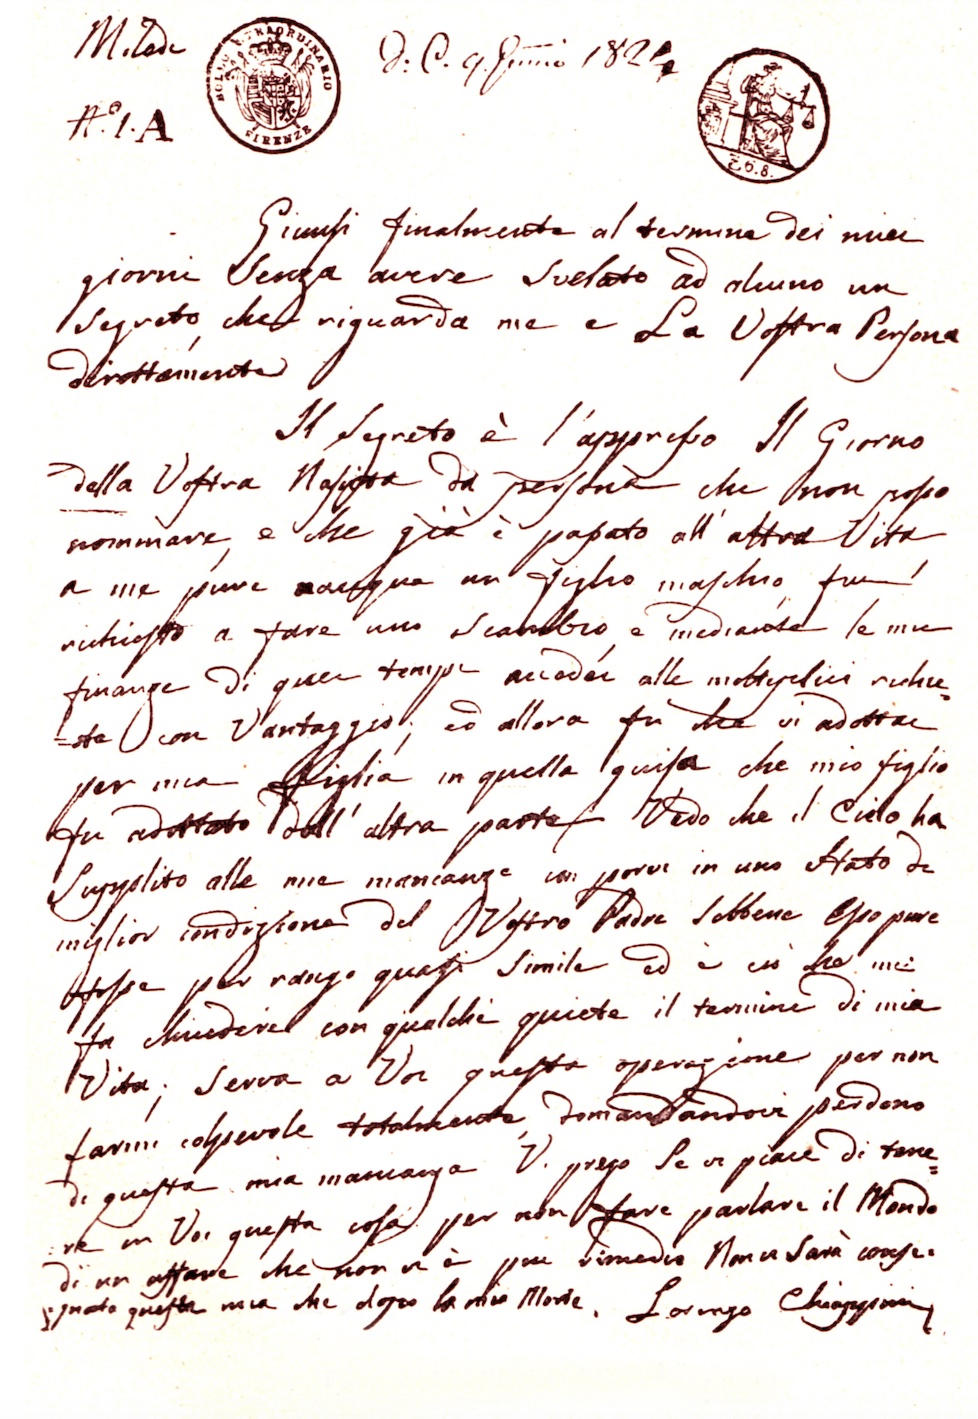 Milade
BOLLO STRAORDINARIO
FIRENZE
D. C. 9. Giunio 1824
N.º 1. A
Z.6.8.
Giunsi finalmente al termine dei miei
giorni senza avere svelato ad alcuno un
Segreto, che riguarda me e La Vostra Persona
direttamente
Il Segreto è l'appresso Il Giorno
della Vostra Nascita da persona che non posso
nominare, e che già è passato all'altra Vita
a me pure nacque un figlio maschio, fui
richiesto a fare uno scambio, e mediante le mie
finanze di quei tempi accedei alle molteplici richie=
=ste con Vantaggio; ed allora fù che vi adottai
per mia figlia, in quella guisa che mio figlio
fu adottato dall'altra parte Vedo che il Cielo ha
Supplito alle mie mancanze con porvi in uno Stato di
miglior condizione del Vostro Padre sebbene Esso pure
fosse per rango quasi simile ed è ciò che mi
fa chiudere con qualche quiete il termine di mia
Vita; serva a Voi questa operazione per non
farmi colpevole totalmente, domandandovi perdono
di questa mia mancanza V. prego Se vi piace di tene=
re in Voi questa cosa per non fare parlare il Mondo
di un affare che non vi è più rimedio Non vi Sarà conse:
gnata questa mia che dopo la mia Morte. Lorenzo Chiappini